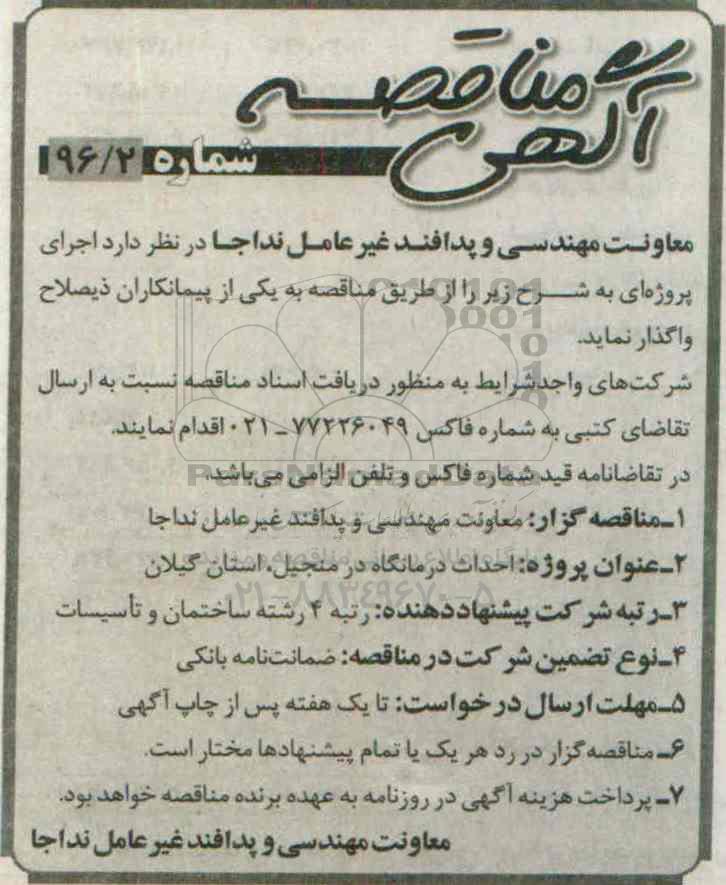 آگهی مناقصه
شماره ۹۶/۲
معاونت مهندسی و پدافند غیر عامل نداجا در نظر دارد اجرای
پروژه‌ای به شرح زیر را از طریق مناقصه به یکی از پیمانکاران ذیصلاح
واگذار نماید.
شرکت‌های واجدشرایط به منظور دریافت اسناد مناقصه نسبت به ارسال
تقاضای کتبی به شماره فاکس ۷۷۲۲۶۰۴۹ ـ ۰۲۱ اقدام نمایند.
در تقاضانامه قید شماره فاکس و تلفن الزامی می‌باشد.
۱ـ مناقصه گزار: معاونت مهندسی و پدافند غیرعامل نداجا
۲ـ عنوان پروژه: احداث درمانگاه در منجیل، استان گیلان
۳ـ رتبه شرکت پیشنهاددهنده: رتبه ۴ رشته ساختمان و تأسیسات
۴ـ نوع تضمین شرکت در مناقصه: ضمانت‌نامه بانکی
۵ـ مهلت ارسال درخواست: تا یک هفته پس از چاپ آگهی
۶ـ مناقصه‌گزار در رد هر یک یا تمام پیشنهادها مختار است.
۷ـ پرداخت هزینه آگهی در روزنامه به عهده برنده مناقصه خواهد بود.
معاونت مهندسی و پدافند غیر عامل نداجا
ParsNamadData
۰۲۱-۸۸۳۴۹۶۷۰-۵